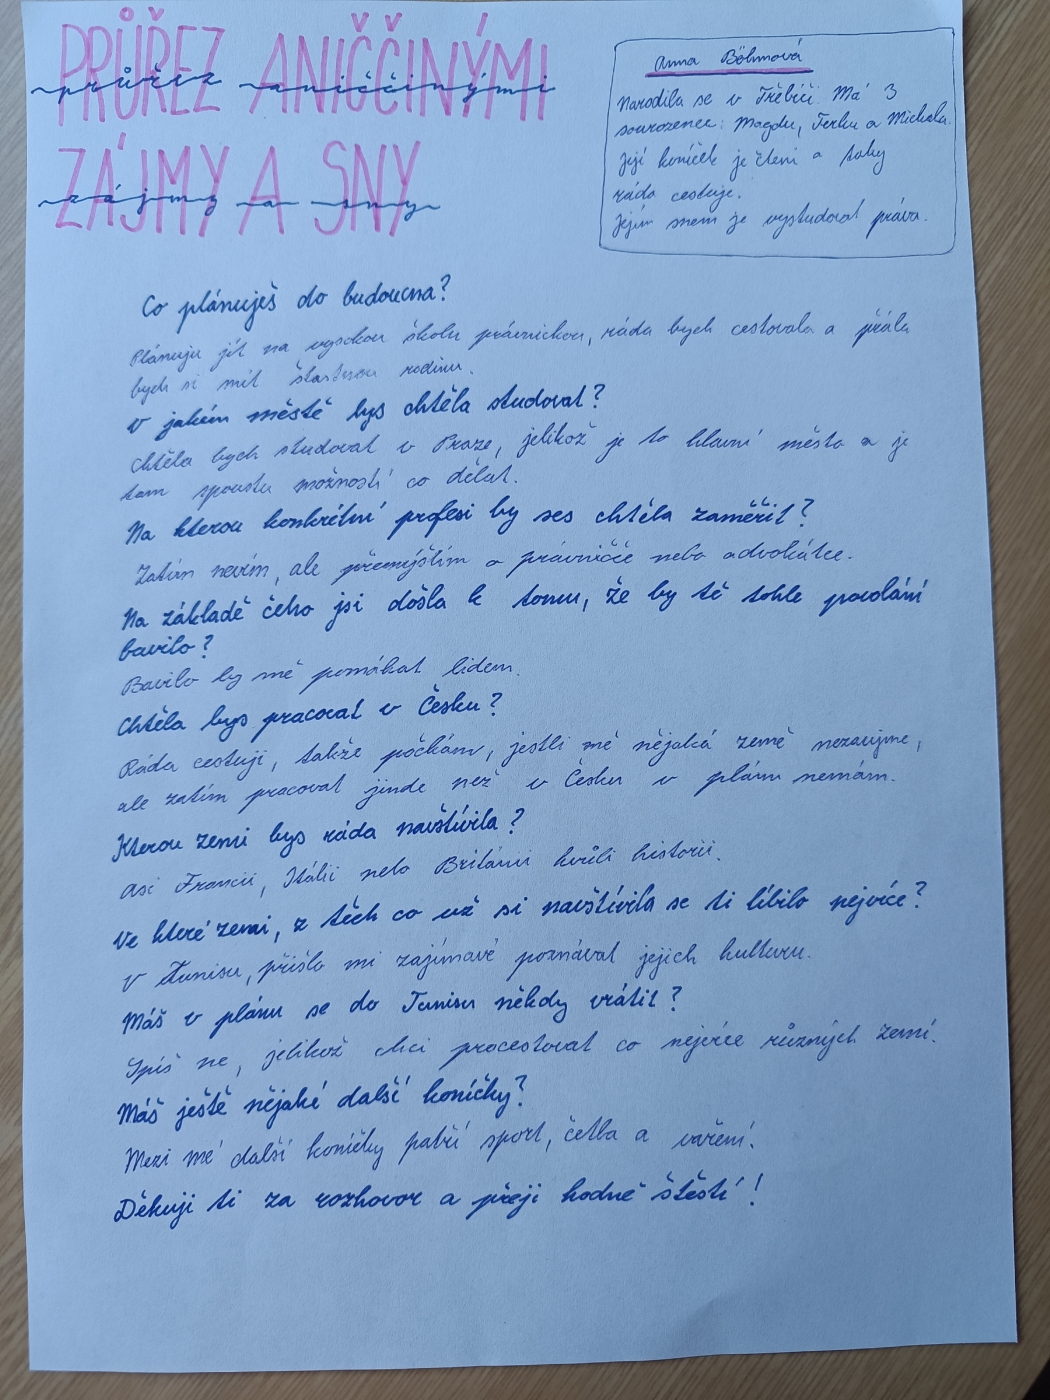 PRŮŘEZ ANIČČINÝMI
průřez aniččinými
ZÁJMY A SNY
zájmy a sny
Anna Böhmová
Narodila se v Třebíči. Má 3
sourozence: Magdu, Terku a Michala.
Její koníček je čtení a taky
ráda cestuje.
Jejím snem je vystudovat práva.
Co plánuješ do budoucna?
Plánuju jít na vysokou školu právnickou, ráda bych cestovala a přála
bych si mít šťastnou rodinu.
V jakém městě bys chtěla studovat?
Chtěla bych studovat v Praze, jelikož je to hlavní město a je
tam spousta možností co dělat.
Na kterou konkrétní profesi by ses chtěla zaměřit?
Zatím nevím, ale přemýšlím o právničce nebo advokátce.
Na základě čeho jsi došla k tomu, že by tě tohle povolání
bavilo?
Bavilo by mě pomáhat lidem.
Chtěla bys pracovat v Česku?
Ráda cestuji, takže počkám, jestli mě nějaká země nezaujme,
ale zatím pracovat jinde než v Česku v plánu nemám.
Kterou zemi bys ráda navštívila?
Asi Francii, Itálii nebo Británii kvůli historii.
Ve které zemi, z těch co už si navštívila se ti líbilo nejvíce?
V Tunisu, přišlo mi zajímavé poznávat jejich kulturu.
Máš v plánu se do Tunisu někdy vrátit?
Spíš ne, jelikož chci procestovat co nejvíce různých zemí.
Máš ještě nějaké další koníčky?
Mezi mé další koníčky patří sport, četba a vaření.
Děkuji ti za rozhovor a přeji hodně štěstí!